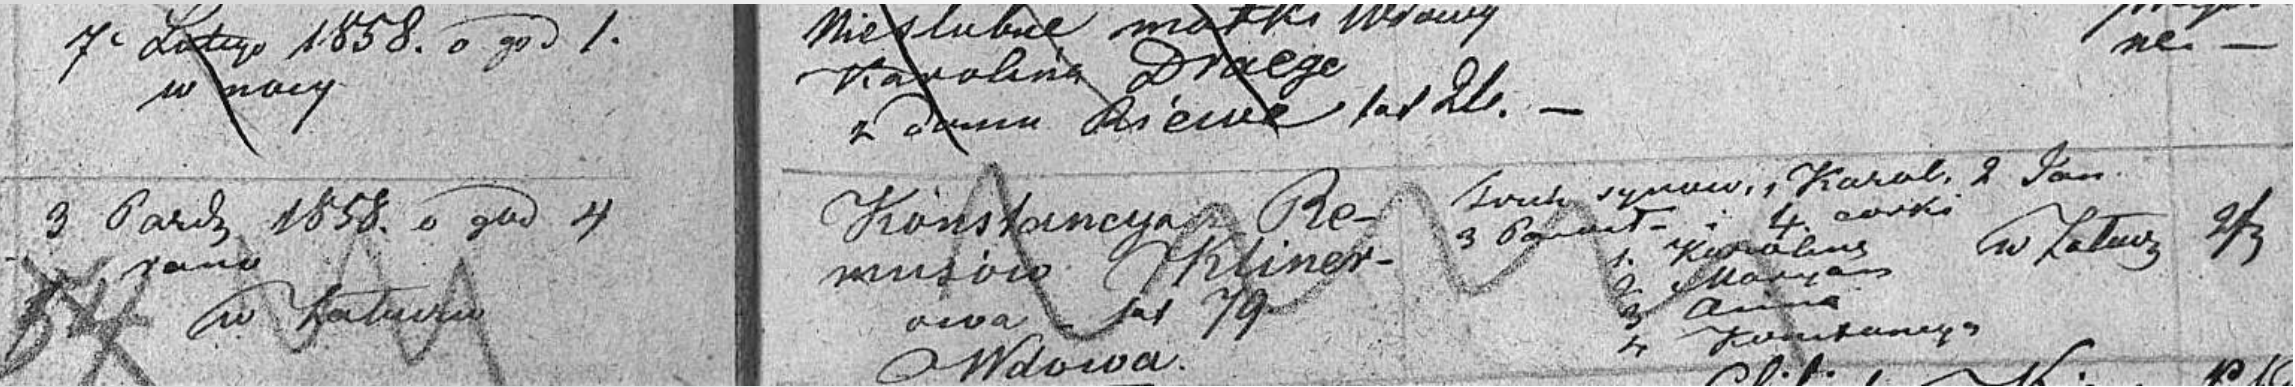 7c Lutego 1858. o god 1.
w nocy
Nieslubne matki Wdowy
Karolina Draege
z domu Riewe lat 26. —
ne. —
3 Pazdz 1858. o god 4
rano
w Latuwiu
Konstancya z Re-
musow Kliner-
owa lat 79
Wdowa.
synow, 1 Karol, 2 Jan
3 i 4 corki
1. Karolina
2. Maryan
3 Anna
4 Konstancya
w